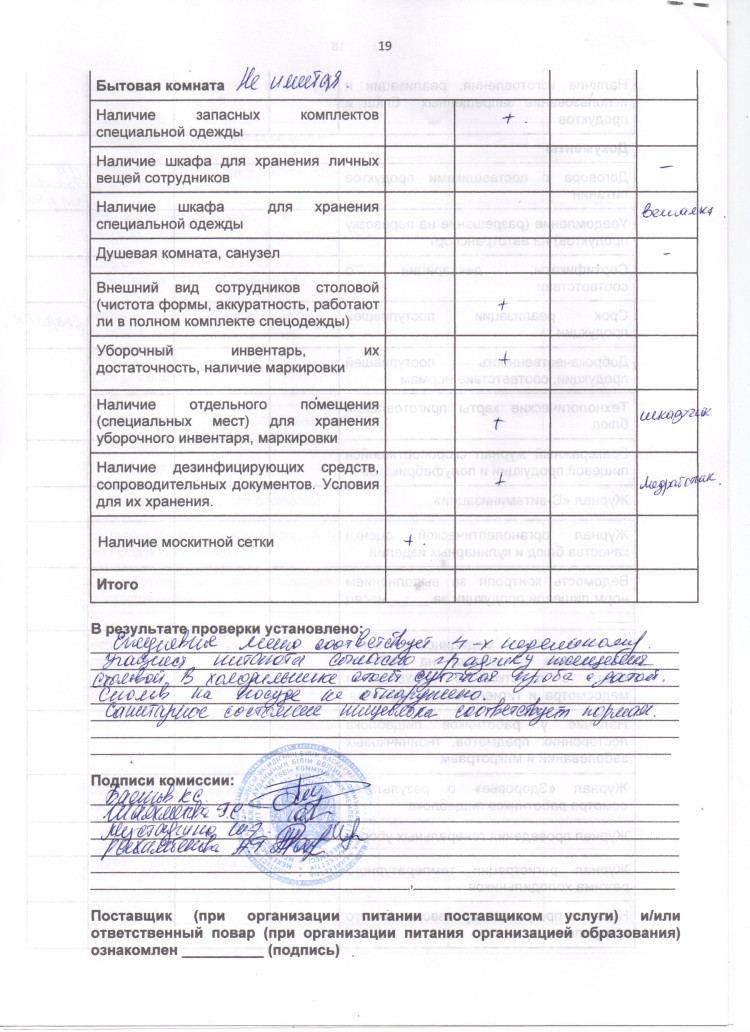 19
Бытовая комната Не имеется.
Наличие запасных комплектов
специальной одежды
+ .
Наличие шкафа для хранения личных
вещей сотрудников
–
Наличие шкафа для хранения
специальной одежды
вешалка.
Душевая комната, санузел
–
Внешний вид сотрудников столовой
(чистота формы, аккуратность, работают
ли в полном комплекте спецодежды)
+
Уборочный инвентарь, их
достаточность, наличие маркировки
+
Наличие отдельного помещения
(специальных мест) для хранения
уборочного инвентаря, маркировки
+
шкафчик
Наличие дезинфицирующих средств,
сопроводительных документов. Условия
для их хранения.
+
Медработник.
Наличие москитной сетки
+ .
Итого
В результате проверки установлено:
Ежедневное меню соответствует 4-х недельному.
Учащиеся питаются согласно графику посещения
столовой. В холодильнике стоит суточная проба с датой.
Сколов на посуде не обнаружено.
Санитарное состояние пищеблока соответствует нормам.
Подписи комиссии:
Поставщик (при организации питании поставщиком услуги) и/или
ответственный повар (при организации питания организацией образования)
ознакомлен __________ (подпись)